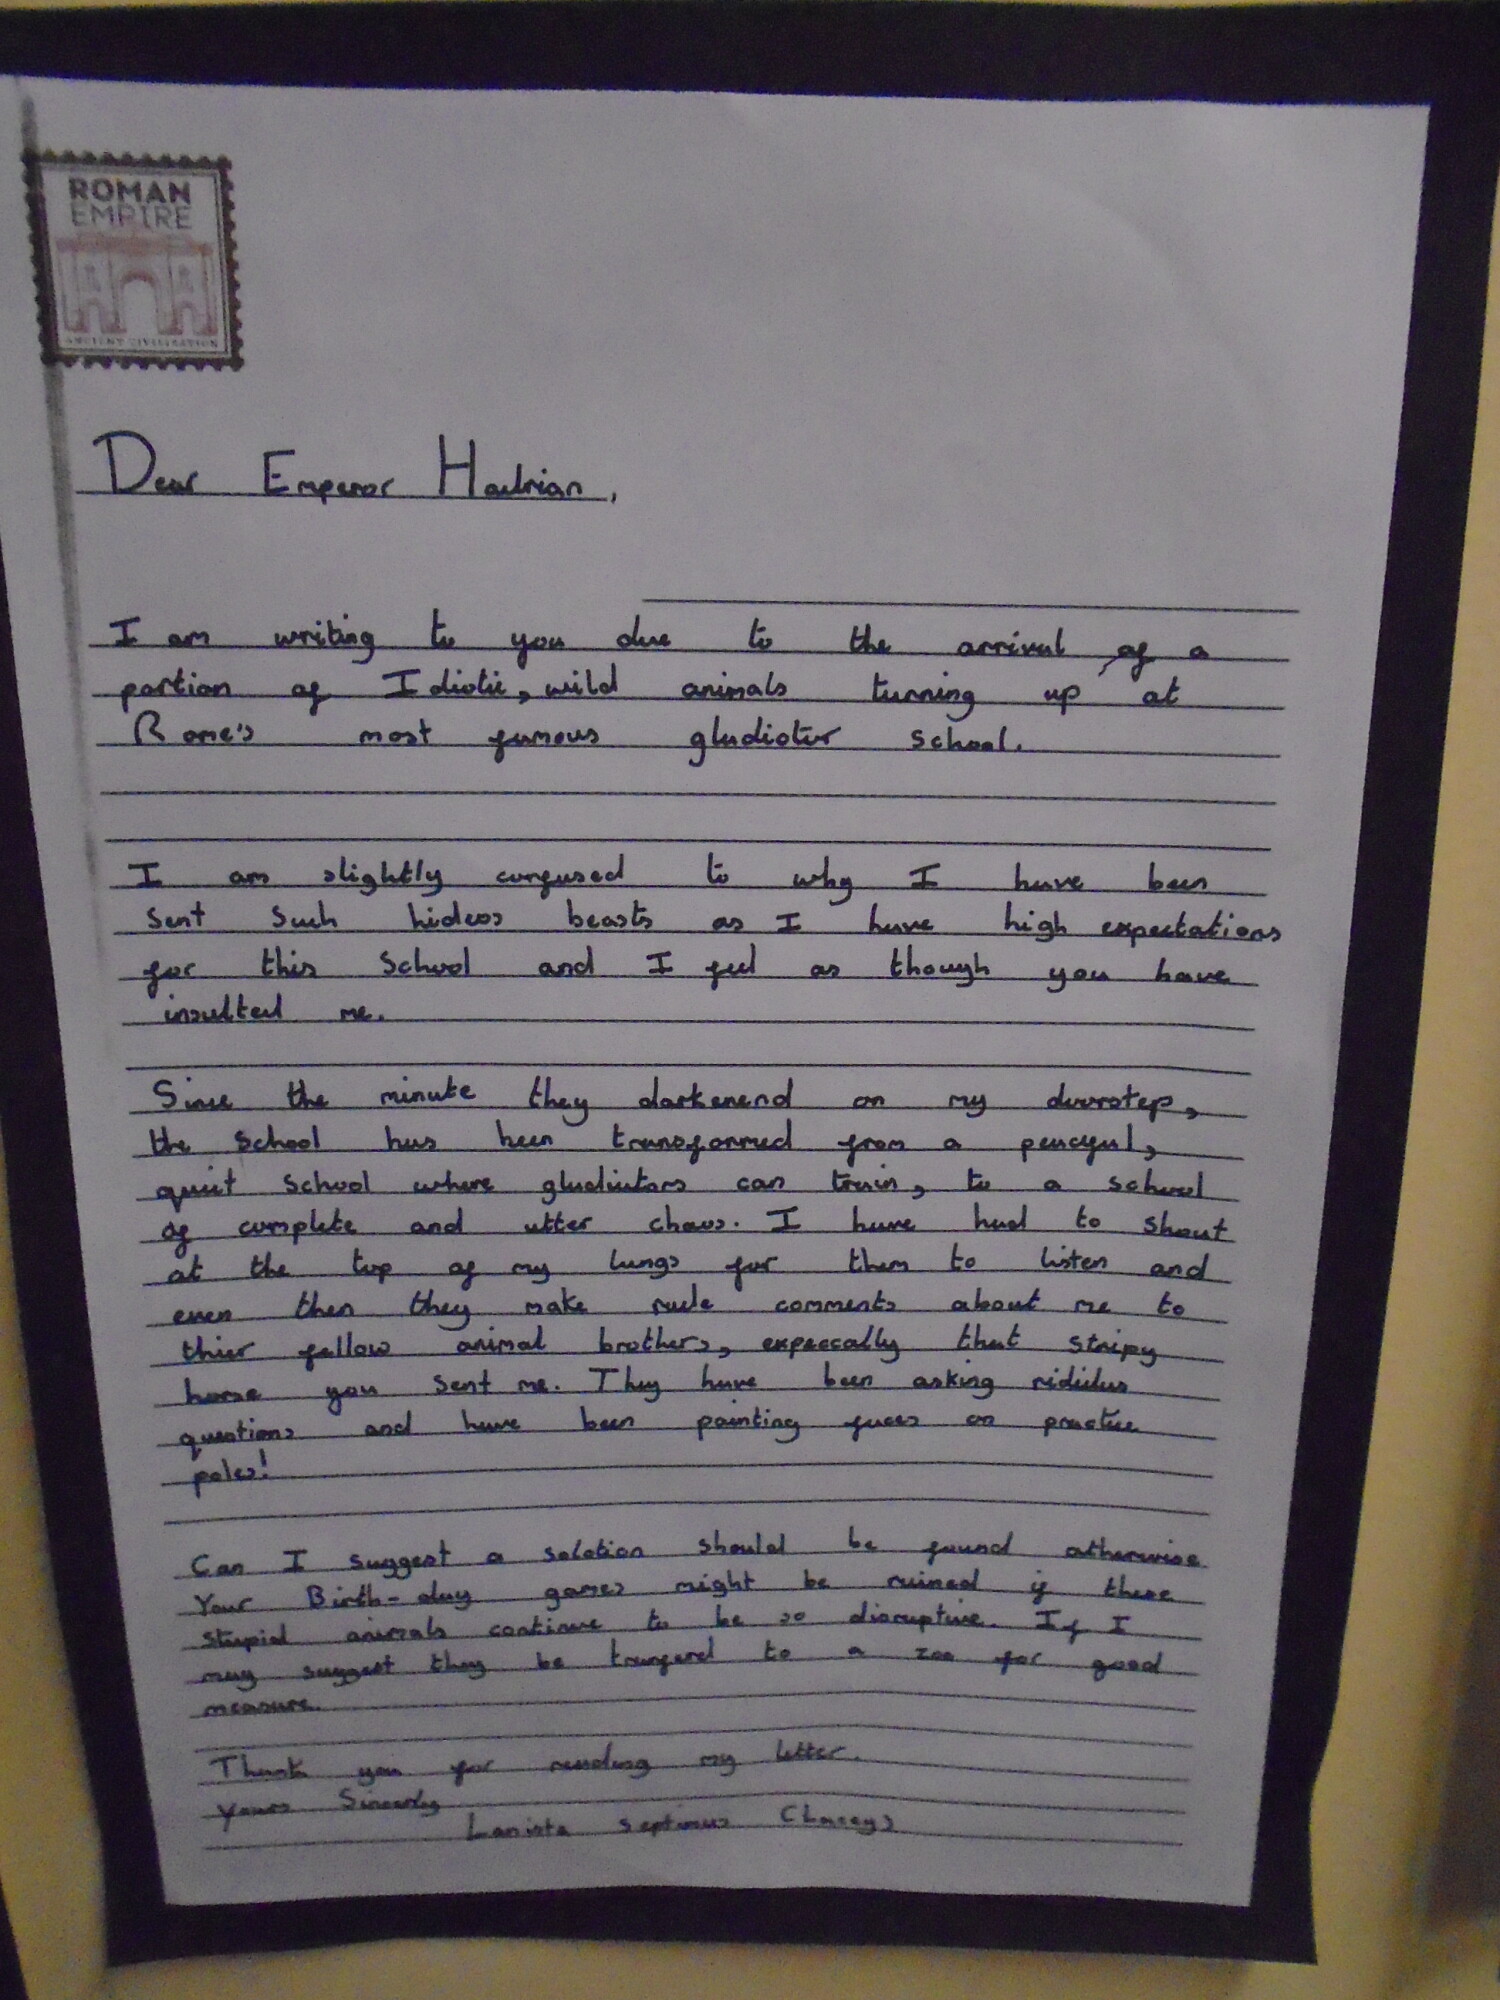 ROMAN
EMPIRE
ANCIENT CIVILISATION
Dear Emperor Hadrian,
I am writing to you due to the arrival of a
portion of Idiotic, wild animals turning up at
Rome's most famous gladiator school.
I am slightly confused to why I have been
sent such hideos beasts as I have high expectations
for this school and I feel as though you have
insulted me.
Since the minute they darkenend on my doorstep,
the school has been transformed from a peaceful,
quiet school where gladiators can train, to a school
of complete and utter chaos. I have had to shout
at the top of my lungs for them to listen and
even then they make rude comments about me to
thier fellow animal brothers, expeccally that stripy
horse you sent me. They have been asking ridiclus
questions and have been painting faces on practice
poles!
Can I suggest a solotion should be found otherwise
Your Birth-day games might be ruined if these
stupid animals continue to be so disruptive. If I
may suggest they be transferd to a zoo for good
measure.
Thank you for reading my letter.
Yours Sincerely
Lanista Septimus (Lacey)